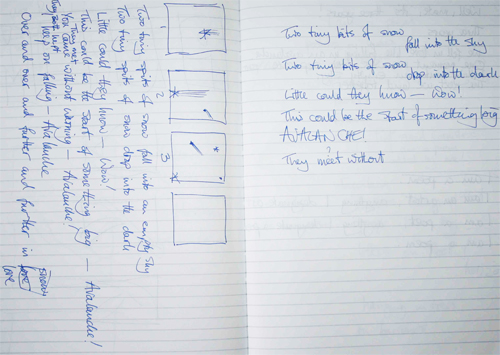 1
2
3
Two tiny spits of snow fall into an empty sky
Two tiny spits of snow drop into the dark
Little could they know — Wow!
This could be the start of something big — Avalanche!
They met
You came without warning — Avalanche!
keep on falling, Avalanche
Over and over and further and further in love
snowy
love
Two tiny bits of snow
fall into the sky
Two tiny bits of snow
drop into the dark
Little could they know — Wow!
This could be the start of something big
AVALANCHE!
They meet without